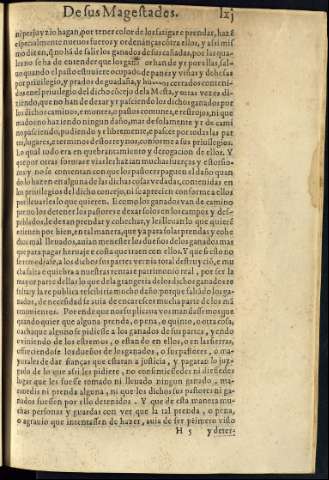 De sus Magestades. lxj
ni perjuyzio hagan, por tener color de los fatigar e prendar, hazẽ
especialmente nueuos fueros y ordenanças cõtra ellos, y assi mis
mo dizen, q̃ no hã de salir los ganados de sus cañadas, por las qua
les no se ha de entender que los ganados ayan de yr por ellas, sal
uo quando el pasto estuuiere ocupado de panes y viñas y dehesas
por priuilegio, y prados de guadaña, y
das en el priuilegio del dicho cõcejo dela Mesta, y otras vezes di
ziendo, que no han de dexar yr pasciendo los dichos ganados por
los dichos caminos, e montes, e pastos comunes, e restrojos, ni que
aun do no haziendo ningun daño, mas de solamente yr de cami
no pasciendo, pudiendo yr libremente, e pascer por todas las par
tes, lugares, e terminos destos reynos, conforme a sus priuilegios.
Lo qual todo era en quebrantamiento y derogacion de ellos. Y
que por otras formas e vias les hazian muchas fuerças y estorsio
nes y no se contentan con que los pastores paguen el daño quan
do lo hazen en alguna de las dichas cosas vedadas, contenidas en
los priuilegios del dicho concejo, ni lo aprecien conforme a ellos
por lleuarles lo que quieren. E como los ganados van de camino
por no los detener los pastores e dexar solos en los campos y des-
poblados, se dexan prendar y cohechar, y les lleuan lo que quieren
e tienen por bien, en tal manera, que ya para solas prendas y cohe
chos mal lleuados, auian menester los dueños de los ganados mas
que para pagar heruaje e costa que traen con ellos. Y que si esto no
se remediasse, a los dichos sus partes vernia total destruyciõ, e mu
cha falta e quiebra a nuestras rentas e patrimonio real, por ser la
mayor parte dellas lo que dela grangeria de los dichos ganados se
saca, y la republica rescibiria mucho daño porque faltãdo los ga-
nados, de necessidad se auia de encarescer mucha parte de los mã
tenimientos. Por ende que nos suplicaua mandassemos que
quando quier que alguna prenda, o pena, o quinto, o otra cosa,
o achaque alguno se pidiesse a los ganados de sus partes, yendo
o viniendo de los estremos, o estando en ellos, o en las sierras,
ofresciendose los dueños de los ganados, o sus pastores, o ma-
yorales de dar fianças que estaran a justicia, y pagaran lo juz-
gado de lo que assi les pidiere, no consintiessedes ni diessedes
lugar que les fuesse tomado ni lleuado ningun ganado, ni
ni prenda alguna, ni que los dichos sus pastores ni ga-
nados fuessen por ello detenidos. Y que de esta manera mu-
chas personas y guardas con ver que la tal prenda, o pena,
o agrauio que intentassen de hazer, auia de ser primero visto
H 5 y deter-